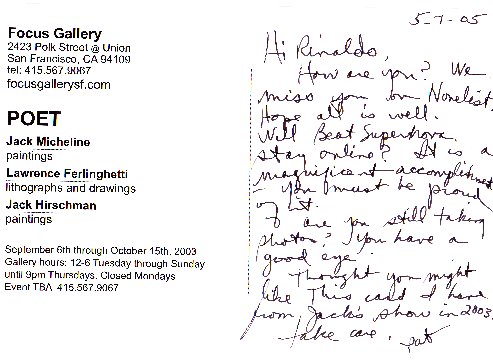 Focus Gallery
2423 Polk Street @ Union
San Francisco, CA 94109
tel: 415.567.9067
focusgallerysf.com
POET
Jack Micheline
paintings
Lawrence Ferlinghetti
lithographs and drawings
Jack Hirschman
paintings
September 6th through October 15th, 2003
Gallery hours: 12-6 Tuesday through Sunday
until 9pm Thursdays. Closed Mondays
Event TBA 415.567.9067
5-7-05
Hi Rinaldo,
How are you? We
miss you on Nonelist.
Hope all is well.
Will Beat Supernova
stay online? It is a
magnificent accomplishment
- You must be proud
of it.
are you still taking
photos? You have a
good eye.
Thought you might
like This card I have
from Jack's show in 2003.
take care. pat